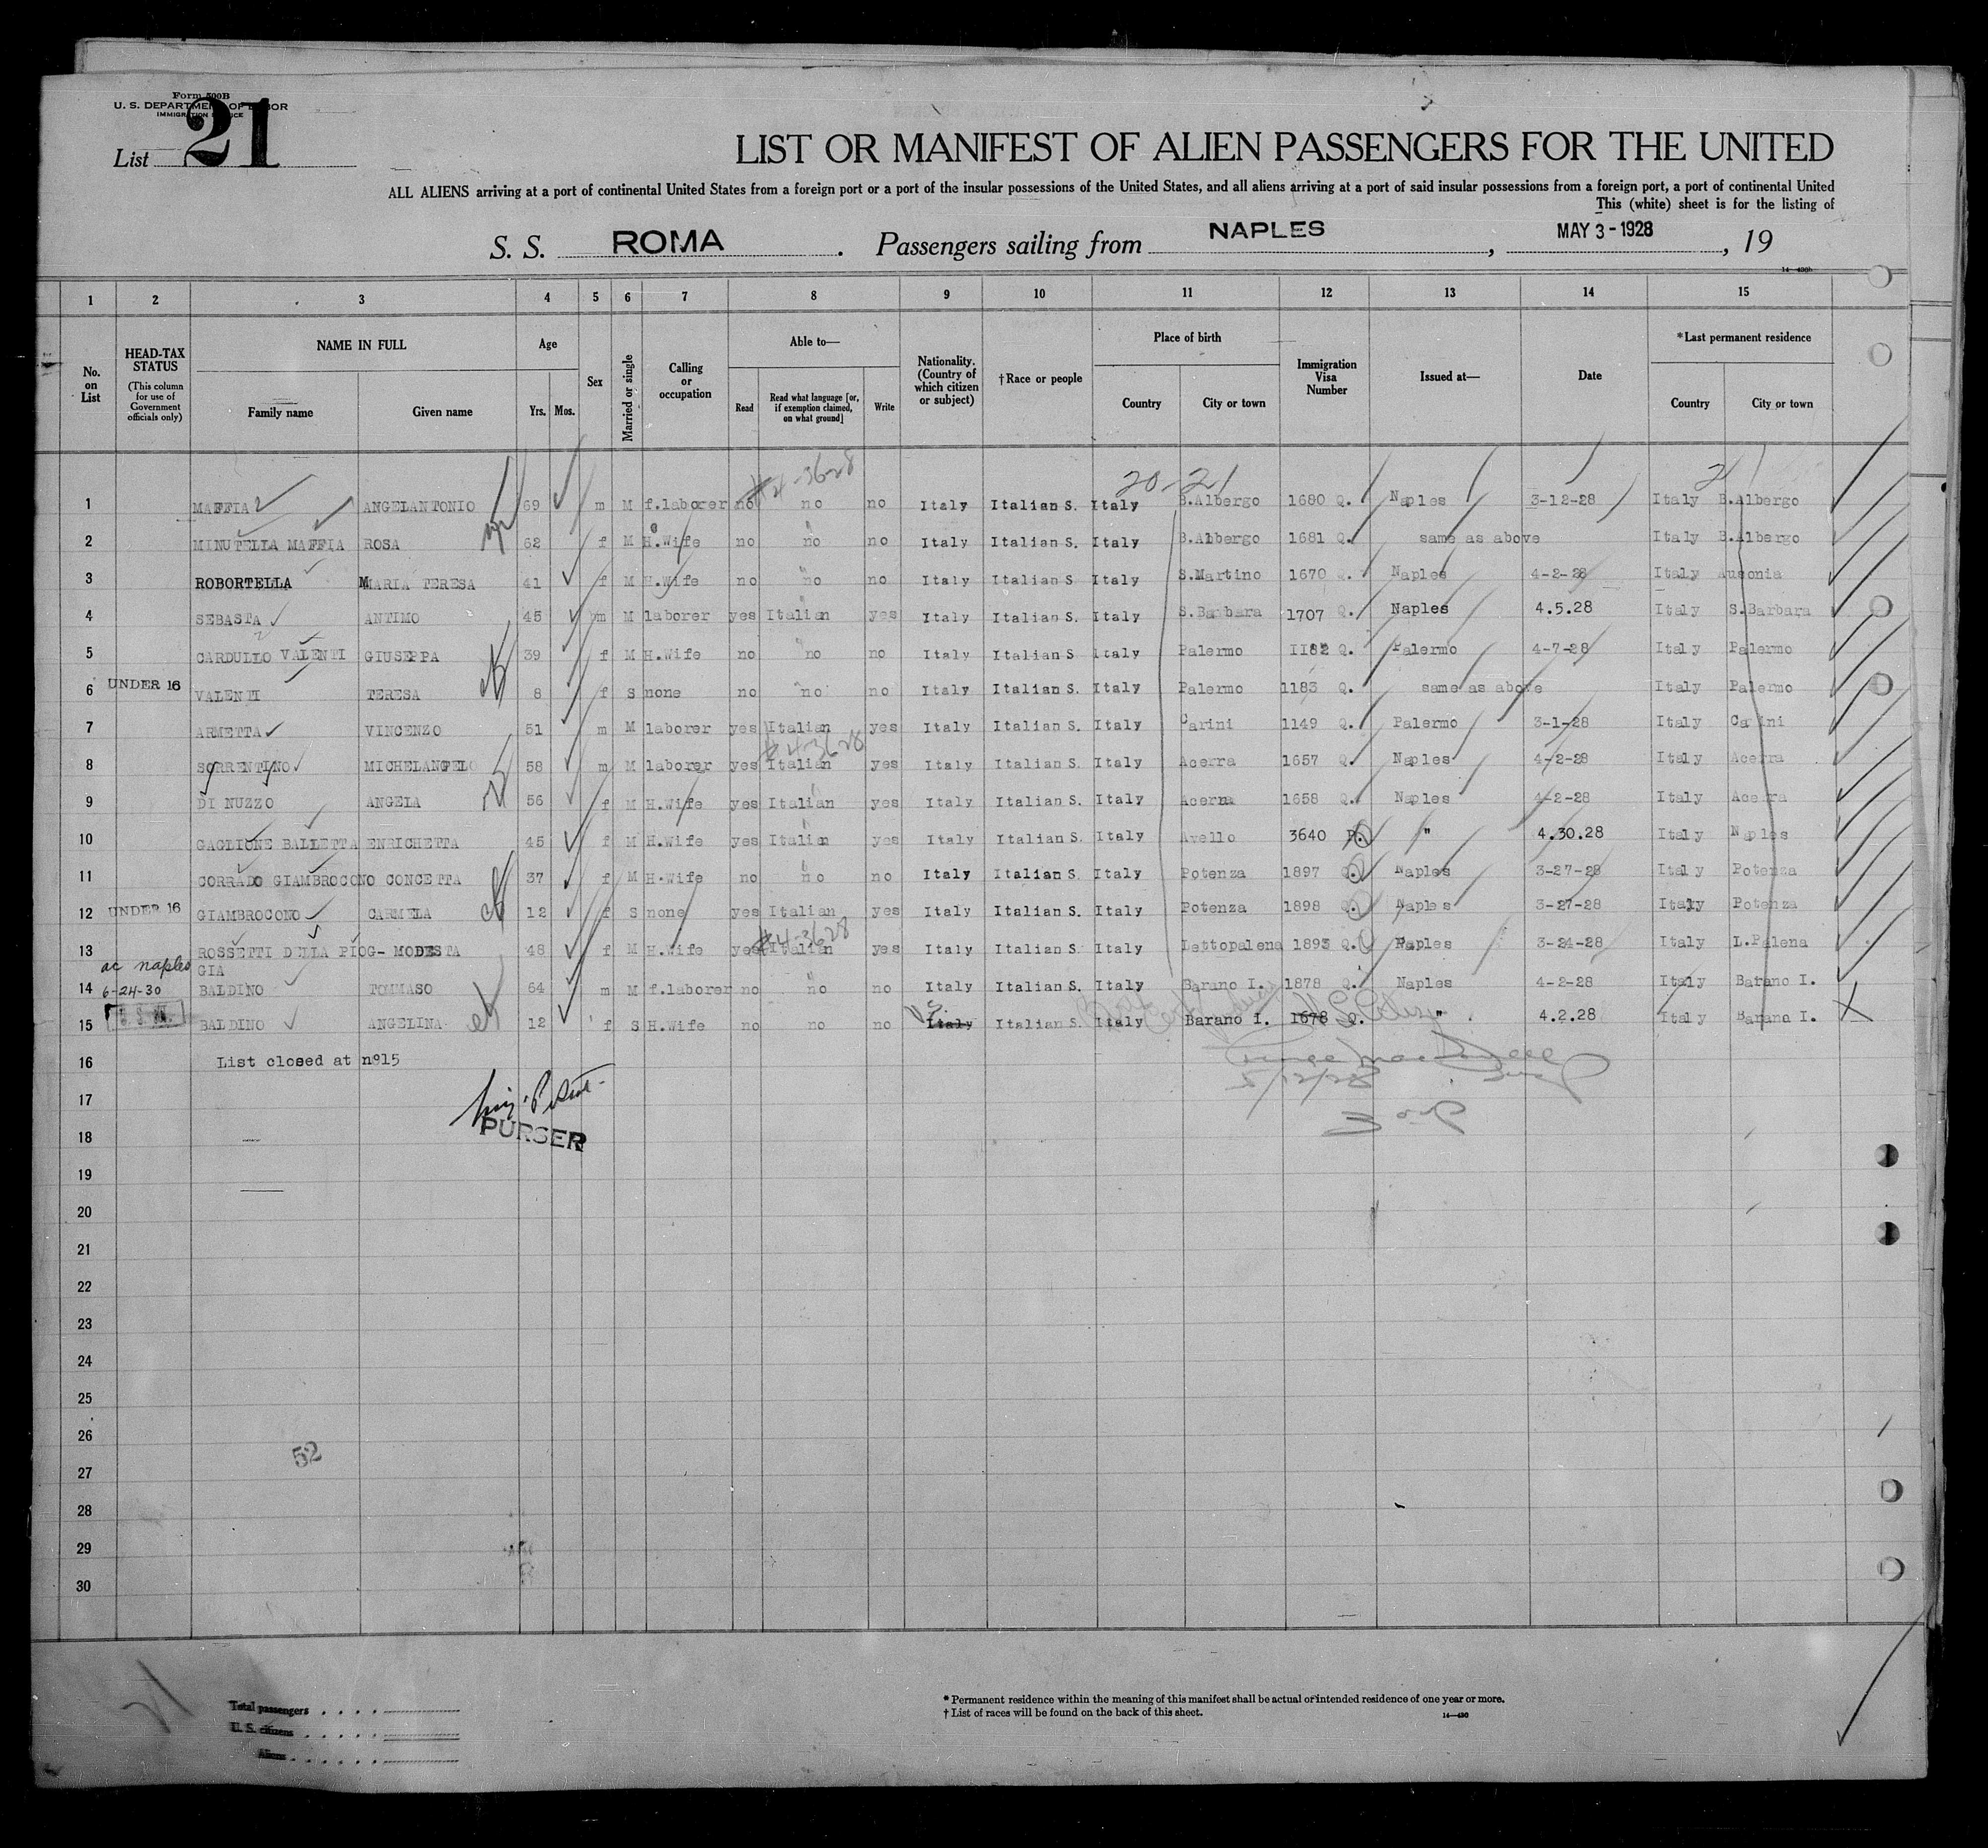 Form 500B
U. S. DEPARTMENT OF LABOR
IMMIGRATION SERVICE
List 21
LIST OR MANIFEST OF ALIEN PASSENGERS FOR THE UNITED
ALL ALIENS arriving at a port of continental United States from a foreign port or a port of the insular possessions of the United States, and all aliens arriving at a port of said insular possessions from a foreign port, a port of continental United
This (white) sheet is for the listing of
S. S. ROMA. Passengers sailing from NAPLES, MAY 3-1928, 19
14—430b
1 2 3 4 5 6 7 8 9 10 11 12 13 14 15
No. on List
HEAD-TAX STATUS (This column for use of Government officials only)
NAME IN FULL
Family name Given name
Age
Yrs. Mos.
Sex
Married or single
Calling or occupation
Able to—
Read Read what language [or, if exemption claimed, on what ground] Write
Nationality. (Country of which citizen or subject)
†Race or people
Place of birth
Country City or town
Immigration Visa Number
Issued at—
Date
*Last permanent residence
Country City or town
#4-3628 20-21 21
1 MAFFIA ANGELANTONIO 69 m M f.laborer no no no Italy Italian S. Italy B.Albergo 1680 Q. Naples 3-12-28 Italy B.Albergo
2 MINUTELLA MAFFIA ROSA 62 f M H.Wife no no no Italy Italian S. Italy B.Albergo 1681 Q. same as above Italy B.Albergo
3 ROBORTELLA MARIA TERESA 41 f M H.Wife no no no Italy Italian S. Italy S.Martino 1670 Q. Naples 4-2-28 Italy Ausonia
4 SEBASTA ANTIMO 45 m M laborer yes Italian yes Italy Italian S. Italy S.Barbara 1707 Q. Naples 4.5.28 Italy S.Barbara
5 CARDULLO VALENTI GIUSEPPA 39 f M H.Wife no no no Italy Italian S Italy Palermo II82 Q. Palermo 4-7-28 Italy Palermo
6 UNDER 16 VALENTI TERESA 8 f S none no no no Italy Italian S. Italy Palermo 1183 Q. same as above Italy Palermo
7 ARMETTA VINCENZO 51 m M laborer yes Italian yes Italy Italian S. Italy Carini 1149 Q. Palermo 3-1-28 Italy Carini
#4-3628
8 SORRENTINO MICHELANGELO 58 m M laborer yes Italian yes Italy Italian S. Italy Acerra 1657 Q. Naples 4-2-28 Italy Acerra
9 DI NUZZO ANGELA 56 f M H.Wife yes Italian yes Italy Italian S. Italy Acerra 1658 Q. Naples 4-2-28 Italy Acerra
10 GAGLIONE BALLETTA ENRICHETTA 45 f M H.Wife yes Italian yes Italy Italian S. Italy Avello 3640 P. " 4.30.28 Italy Naples
11 CORRADO GIAMBROCONO CONCETTA 37 f M H.Wife no no no Italy Italian S. Italy Potenza 1897 Q. Naples 3-27-28 Italy Potenza
12 UNDER 16 GIAMBROCONO CARMELA 12 f S none yes Italian yes Italy Italian S. Italy Potenza 1898 Q. Naples 3-27-28 Italy Potenza
#4-3628
13 ROSSETTI DELLA PIOG- MODESTA 48 f M H.Wife yes Italian yes Italy Italian S. Italy Lettopalena 1893 Q. Naples 3-24-28 Italy L.Palena
ac naples GIA
14 6-24-30 BALDINO TOMMASO 64 m M f.laborer no no no Italy Italian S. Italy Barano I. 1878 Q. Naples 4-2-28 Italy Barano I.
15 BALDINO ANGELINA 12 f S H.Wife no no no Italy U.S. Italian S. Italy Barano I. 1678 Q. " 4.2.28 Italy Barano I.
16 List closed at nº15
17 5/12/28
PURSER
18
19
20
21
22
23
24
25
26
52
27
28
29
30
21
Total passengers
U. S. citizens
Aliens
* Permanent residence within the meaning of this manifest shall be actual or intended residence of one year or more.
† List of races will be found on the back of this sheet.
14—430